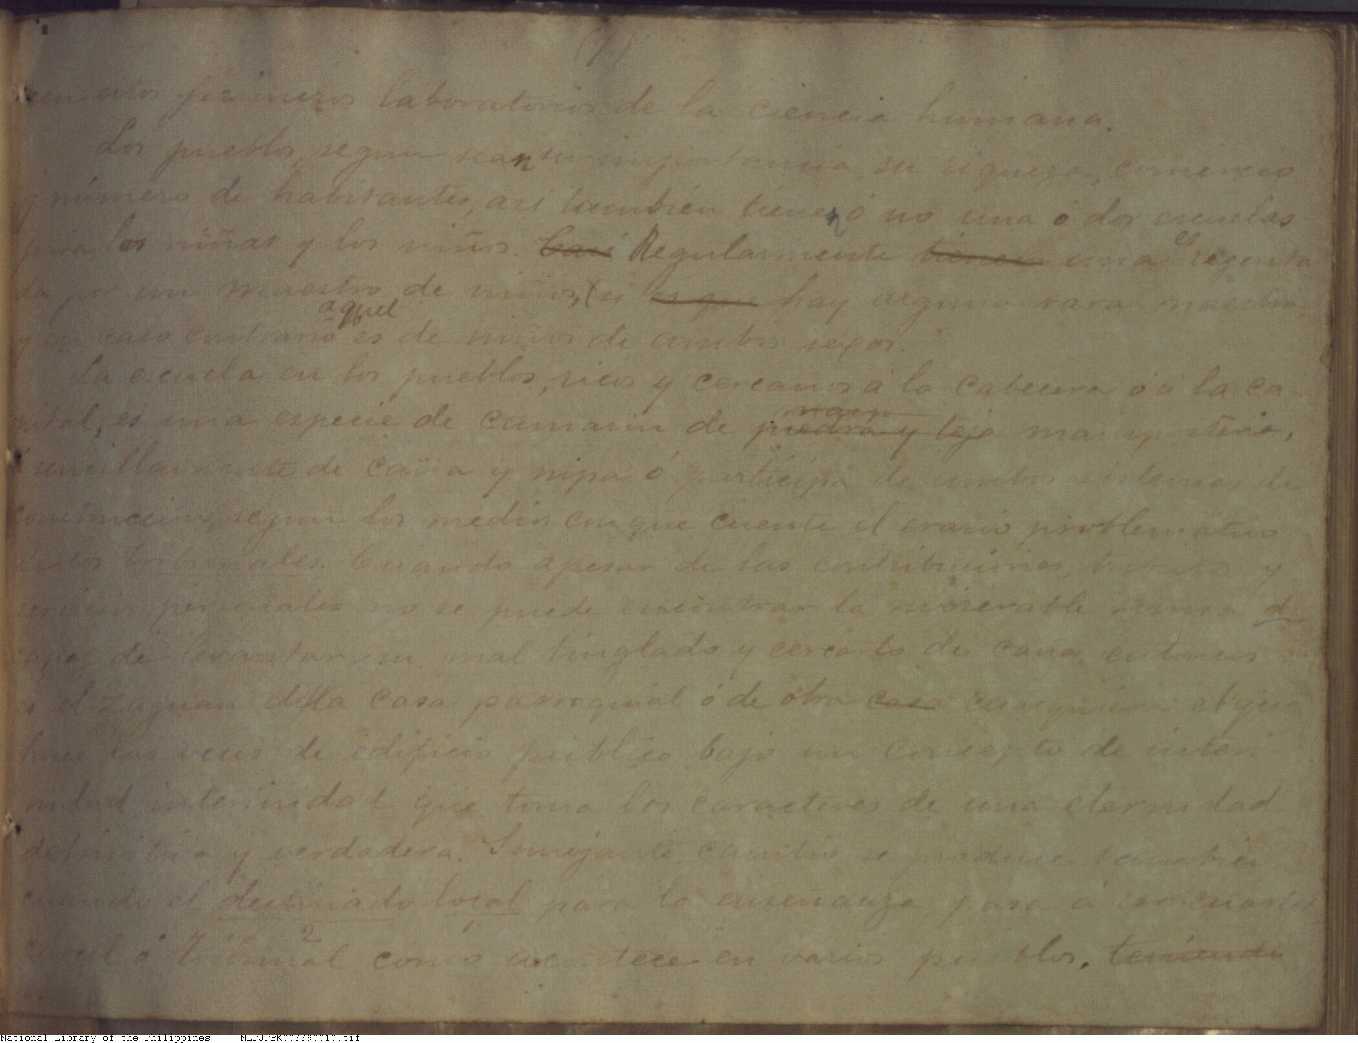 en estos primeros laboratorios de la ciencia humana.
Los pueblos, segun sean su importancia, su riqueza, comercio
y número de habitantes, así tambien tienen ó no una ó dos escuelas
para las niñas y los niños. Casi Regularmente tienen una es regenta
da por un maestro de niños, (si es que hay alguna rara maestra,
aquel
y en caso contrario es de niños de ambos sexos.
La escuela en los pueblos, ricos y cercanos á la cabecera ó á la ca
pital, es una especie de camarin de piedra y teja mampostería,
ó sencillamente de caña y nipa ó participa de ambos sistemas de
construccion, segun los medios con que cuente el erario problemático
de los tribunales. Cuando apesar de las contribuciones, y
servicios personales no se puede encontrar la miserable suma
capaz de levantar un mal tinglado y cercarlo de caña, entonces
es el zaguan de la casa parroquial ó de otra casa cualquiera el que
hace las veces de edificio público bajo un concepto de interi
nidad interinidad que toma los caracteres de una eternidad
definitiva y verdadera. Semejante cambio se produce tambien
cuando el destinado local para la enseñanza, pasa á ser cuartel
ó tribunal como acontece en varios pueblos, teniendo
National Library of the Philippines